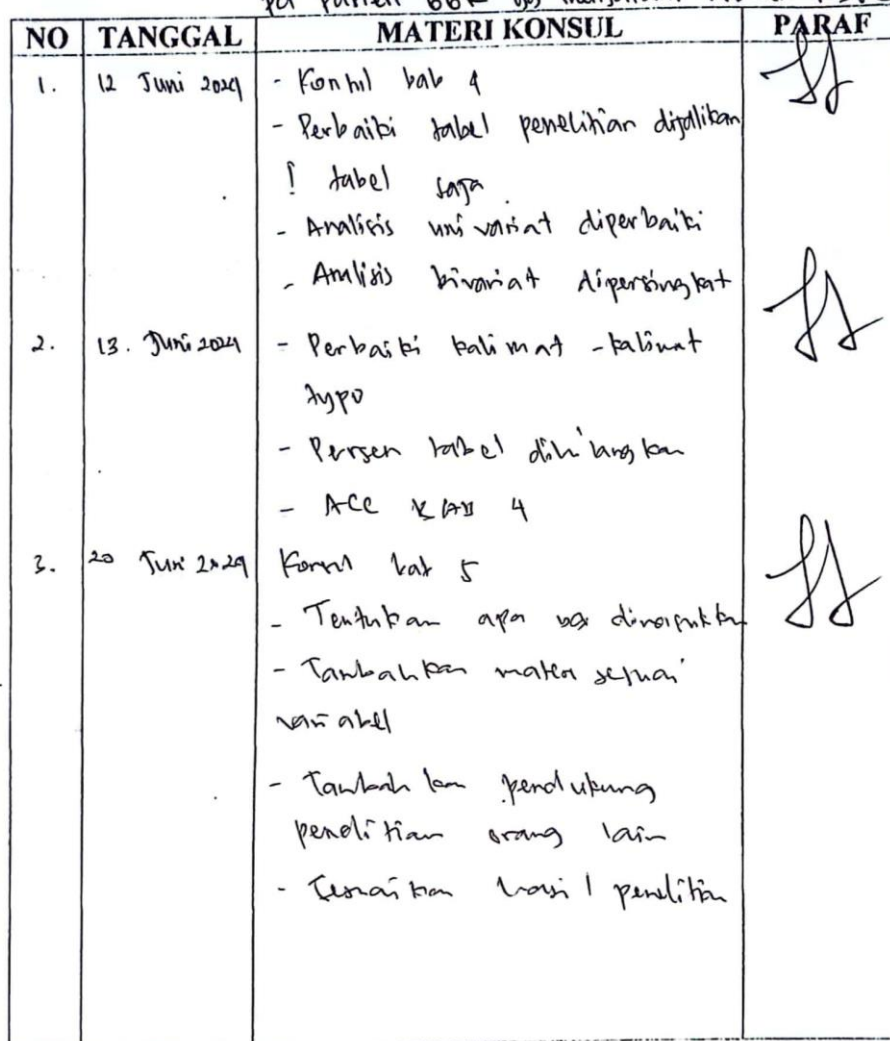 pd pasien GGK yg menjalani
NO TANGGAL MATERI KONSUL PARAF
1. 12 Juni 2024 - Konsul bab 4
- Perbaiki tabel penelitian dijadikan
1 tabel saja
- Analisis univariat diperbaiki
- Analisis bivariat dipersingkat
2. 13. Juni 2024 - Perbaiki kalimat - kalimat
typo
- Persen tabel dihilangkan
- ACC BAB 4
3. 20 Juni 2024 Konsul bab 5
- Tentukan apa yg
- Tambahkan materi sesuai
variabel
- Tambahkan pendukung
penelitian orang lain
- Sesuaikan hasil penelitian